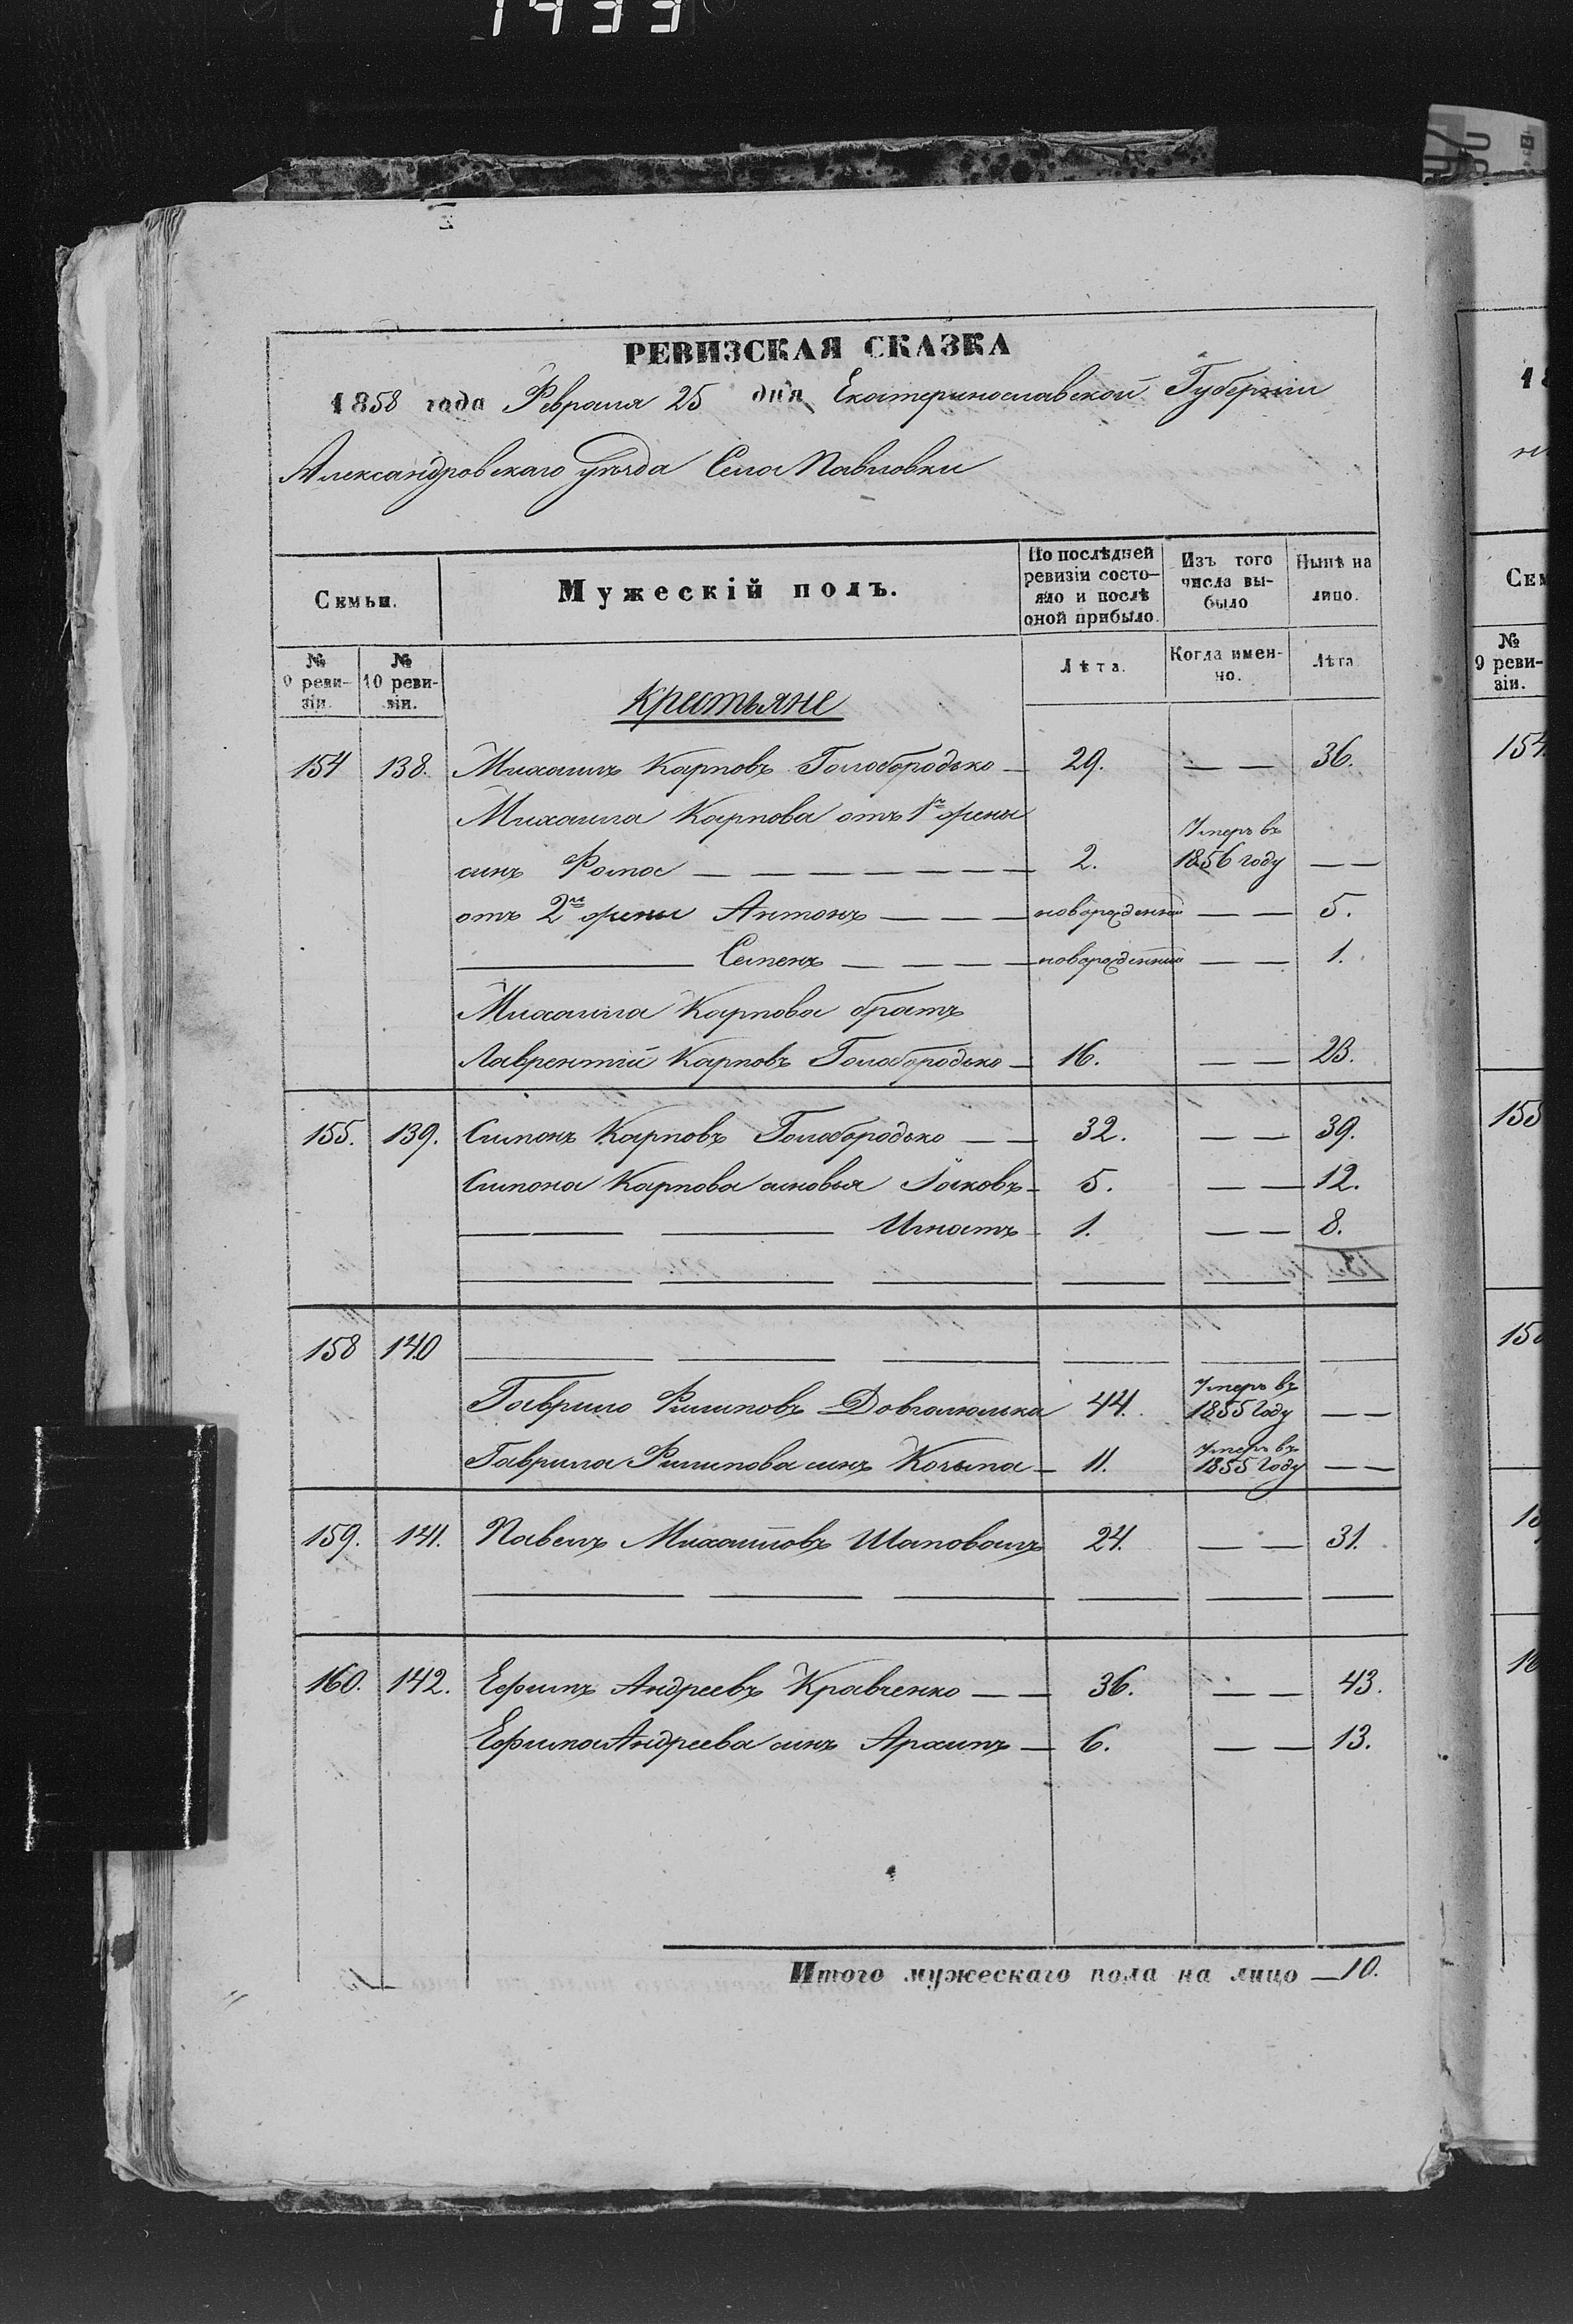 1433
РЕВИЗСКАЯ СКАЗКА
1858 года Февраля 25 дня Екатеринославской Губерніи
Александровскаго уѣзда Села Павловки
Семьи.
Мужескій полъ.
По послѣдней ревизіи состояло и послѣ оной прибыло.
Изъ того числа выбыло
Нынѣ на лицо.
№ 9 ревизіи.
№ 10 ревизіи.
Лѣта.
Когда именно.
Лѣта
Крестьяне
154 138. Михаилъ Карповъ Голобородько — 29. — — 36.
Михаила Карпова отъ 1й жены
сынъ Фома — — — — — — — 2. Умеръ въ 1856 году — —
отъ 2й жены Антонъ — — — новорожденный — — 5.
— Семенъ — — — — новорожденный — — 1.
Михаила Карпова братъ
Лаврентій Карповъ Голобородько — 16. — — 23.
155. 139. Симонъ Карповъ Голобородько — — 32. — — 39.
Симона Карпова сыновья Іаковъ — 5. — — 12.
— — — Игнатъ — 1. — — 8.
158 140
Гаврило Филиповъ Довгалюшка 44. Умеръ въ 1855 Году — —
Гаврила Филипова сынъ — 11. Умеръ въ 1855 Году — —
159. 141. Павелъ Михайловъ Шаповалъ 24. — — 31.
160. 142. Ефимъ Андреевъ Кравченко — — 36. — — 43.
Ефима Андреева сынъ Архипъ — 6. — — 13.
Итого мужескаго пола на лицо — 10.
18
Сем
№ 9 ревизіи.
154
155
158
15
16